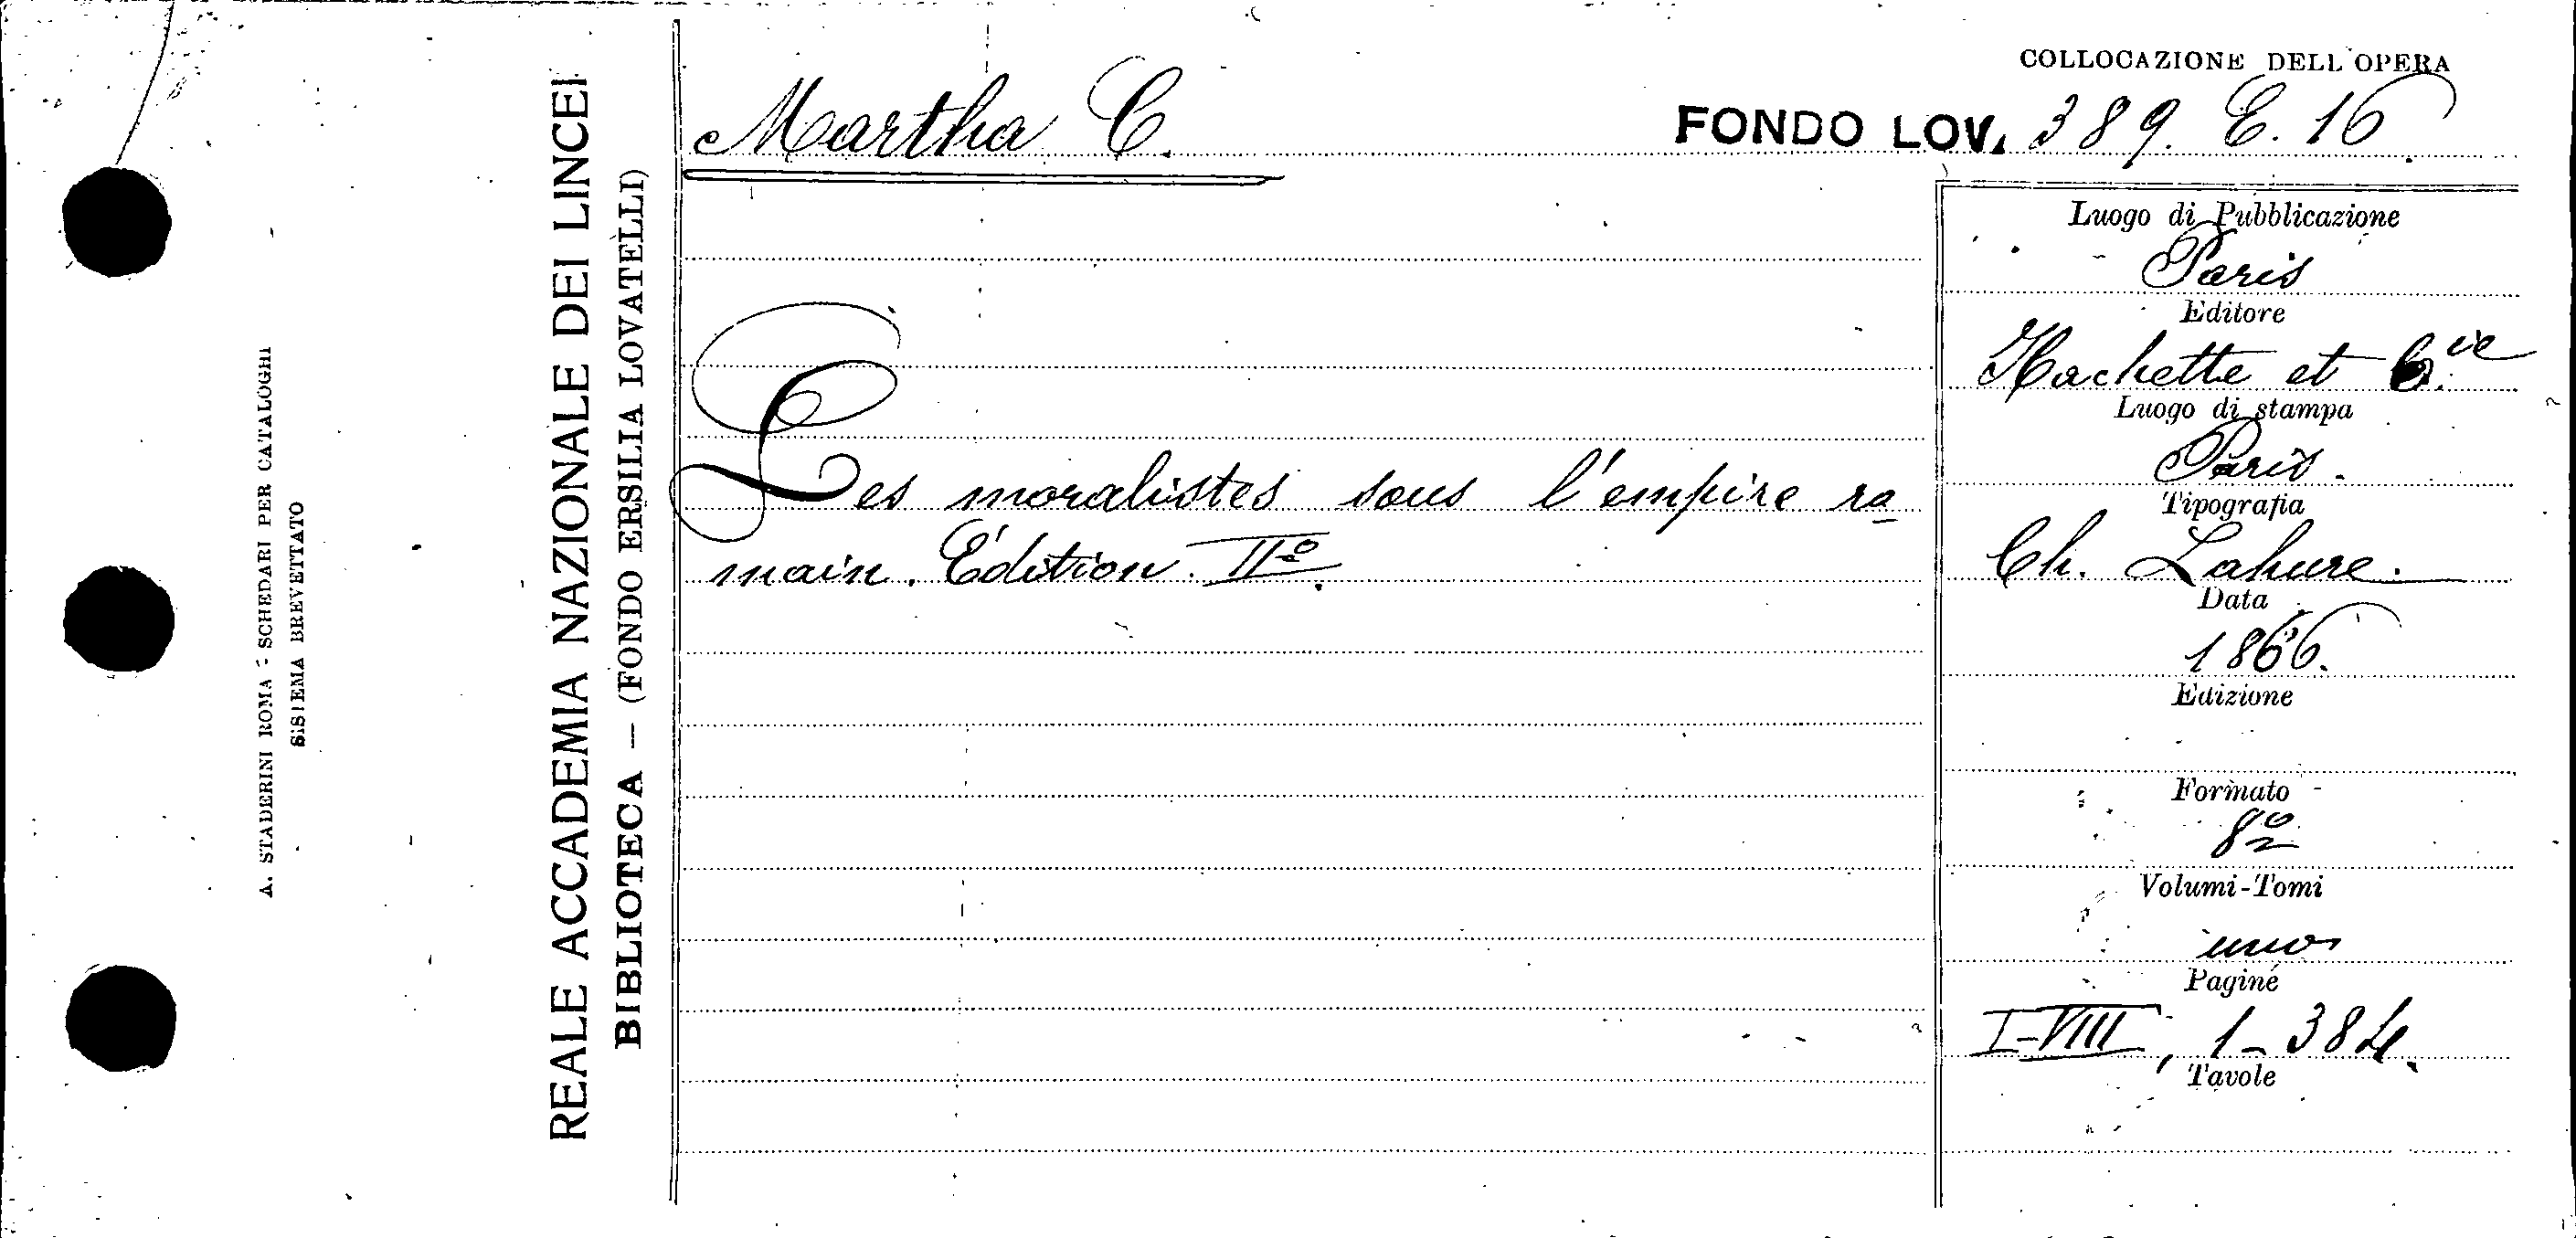 A. STADERINI ROMA - SCHEDARI PER CATALOGHI
SISTEMA BREVETTATO
REALE ACCADEMIA NAZIONALE DEI LINCEI
BIBLIOTECA — (FONDO ERSILIA LOVATELLI)
COLLOCAZIONE DELL'OPERA
Martha C.
FONDO LOV. 389. E. 16.
Les moralistes sous l'empire ro
main. Édition IIª.
Luogo di Pubblicazione
Paris
Editore
Hachette et C.ie
Luogo di stampa
Paris.
Tipografia
Ch. Lahure.
Data
1866.
Edizione
Formato
8º
Volumi-Tomi
uno
Pagine
I-VIII, 1-384.
Tavole